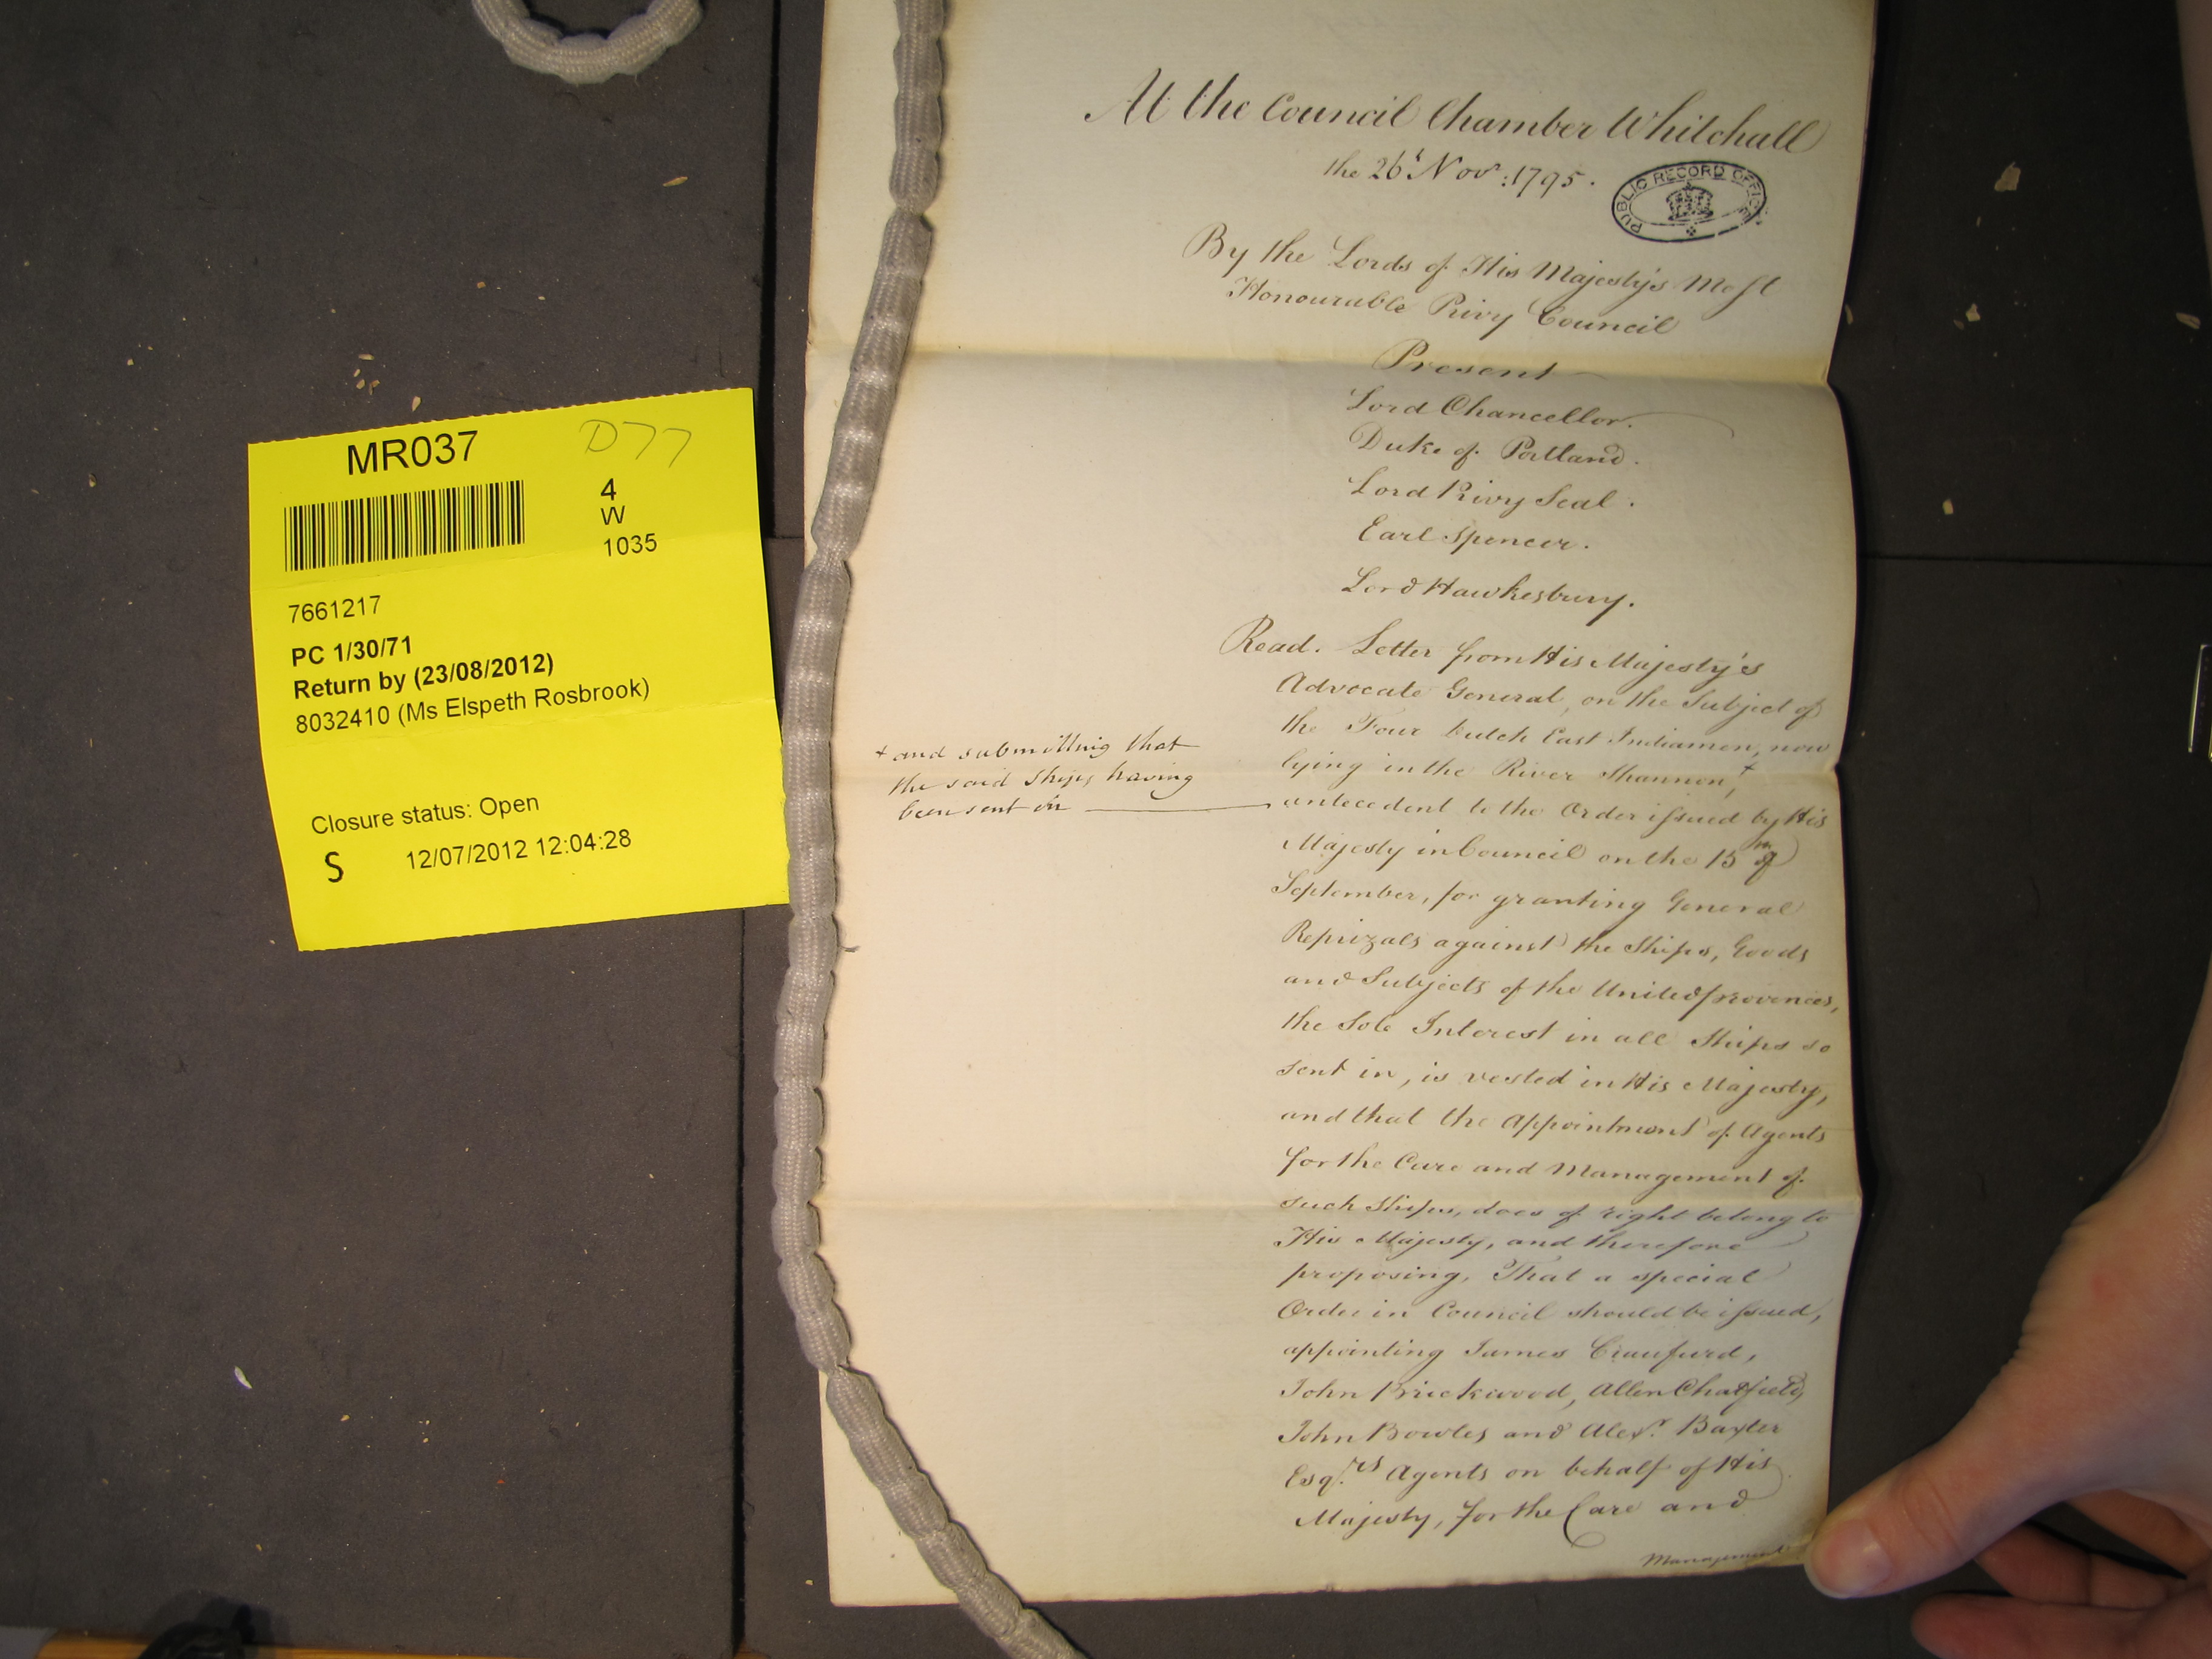 MR037
D77
4
W
1035
7661217
PC 1/30/71
Return by (23/08/2012)
8032410 (Ms Elspeth Rosbrook)
Closure status: Open
S 12/07/2012 12:04:28
At the Council Chamber Whitehall
the 26t Novr: 1795.
PUBLIC RECORD OFFICE
By the Lords of His Majesty's Most
Honourable Privy Council
Present
Lord Chancellor.
Duke of Portland.
Lord Privy Seal.
Earl Spencer.
Lord Hawkesbury.
Read. Letter from His Majesty's
Advocate General, on the Subject of
the Four Dutch East Indiamen, now
lying in the River Shannon, +
+ and submitting that
the said Ships, having
been sent in
antecedent to the Order issued by His
Majesty in Council on the 15th of
September, for granting General
Reprizals against the Ships, Goods
and Subjects of the United provinces,
the Sole Interest in all Ships so
sent in, is vested in His Majesty,
and that the Appointment of Agents
for the Care and Management of
such Ships, does of right belong to
His Majesty, and therefore
proposing, That a special
Order in Council should be issued,
appointing James Craufurd,
John Brickwood, Allen Chatfield,
John Bowles and Alexr. Baxter
Esq.rs Agents on behalf of His
Majesty, for the Care and
Management